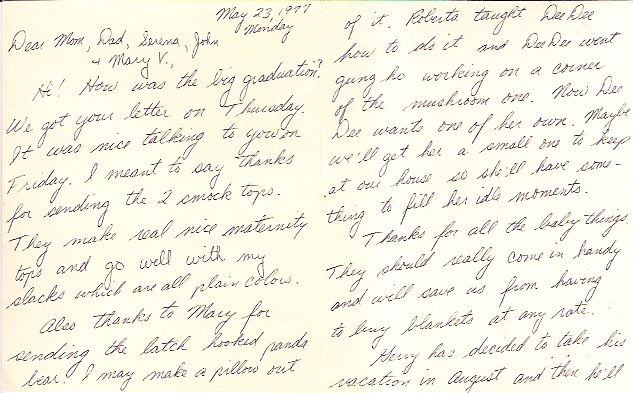 May 23, 1977
Monday
Dear Mom, Dad, Serena, John
+ Mary V.,
Hi! How was the big graduation?
We got your letter on Thursday.
It was nice talking to you on
Friday. I meant to say thanks
for sending the 2 smock tops.
They make real nice maternity
tops and go well with my
slacks which are all plain colors.
Also thanks to Mary for
sending the latch hooked panda
bear. I may make a pillow out
of it. Roberta taught DeeDee
how to do it and DeeDee went
gung ho working on a corner
of the mushroom one. Now Dee
Dee wants one of her own. Maybe
we'll get her a small one to keep
at our house so she'll have some-
thing to fill her idle moments.
Thanks for all the baby things.
They should really come in handy
and will save us from having
to buy blankets at any rate.
has decided to take his
vacation in August and then he'll